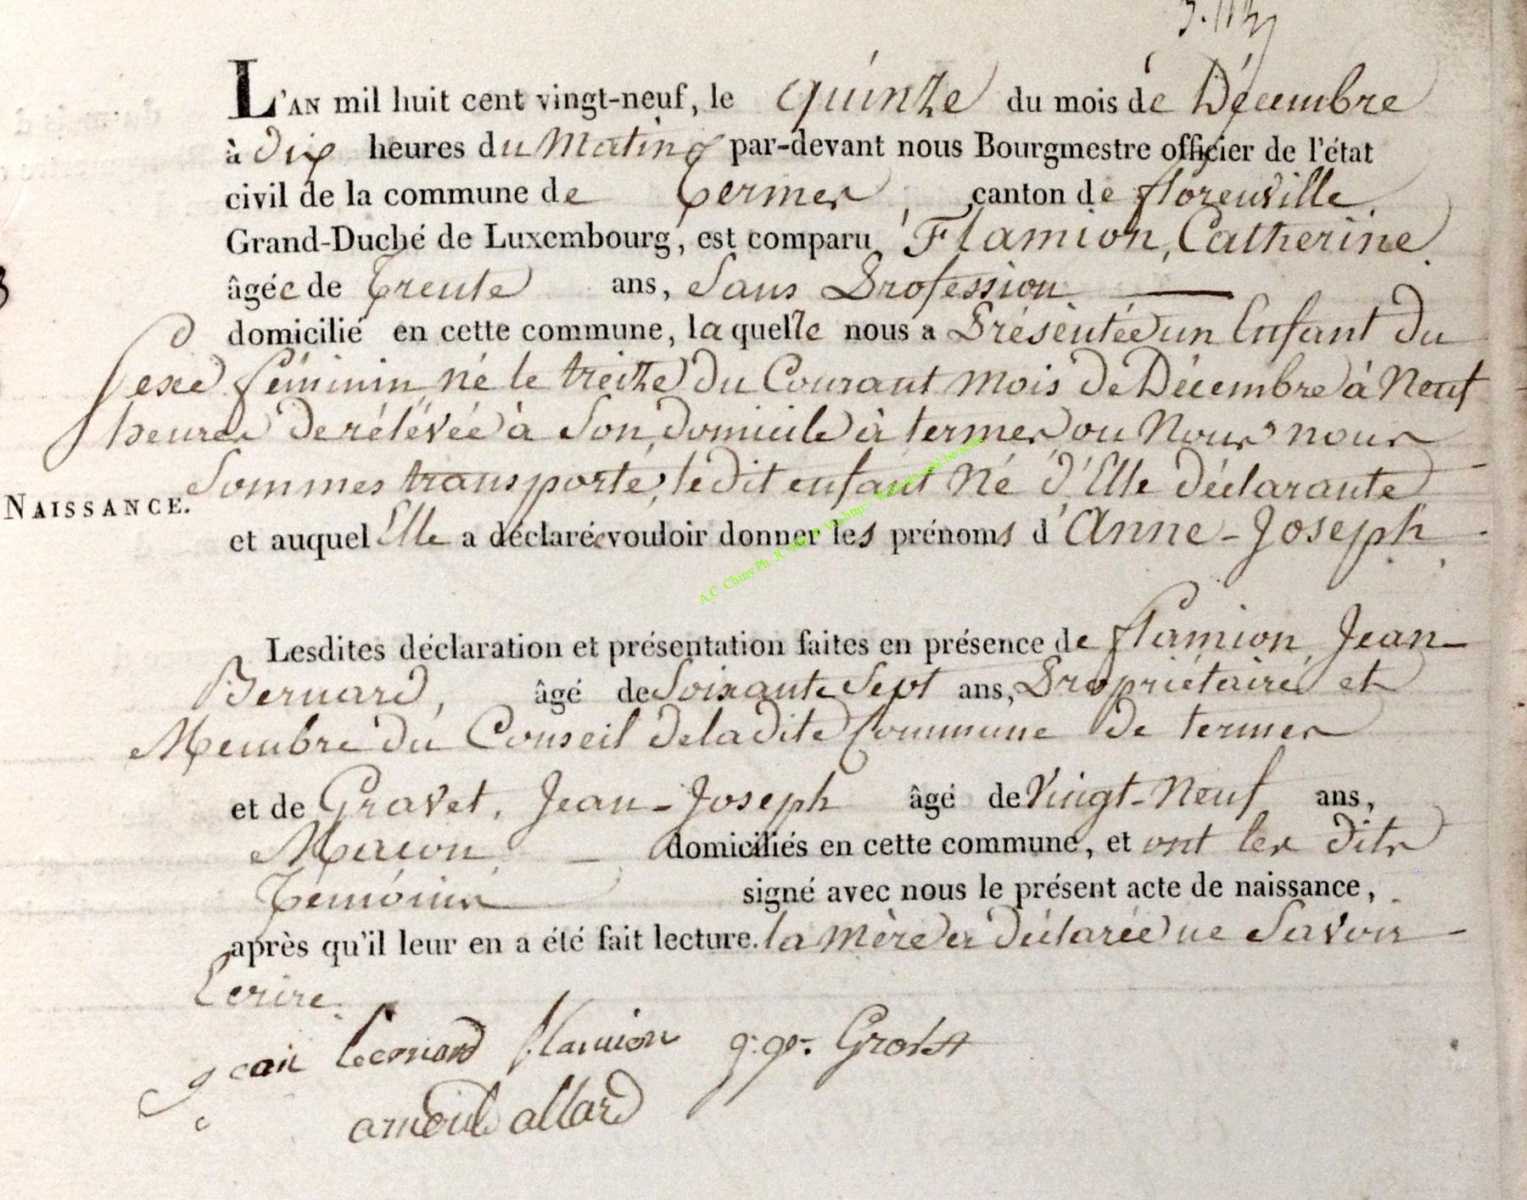 L'AN mil huit cent vingt-neuf, le quinze du mois de Décembre
à dix heures du Matin par-devant nous Bourgmestre officier de l'état
civil de la commune de termes, canton de florenville,
Grand-Duché de Luxembourg, est comparu Flamion, Catherine
âgée de trente ans, Sans Profession
domicilié en cette commune, laquelle nous a Présentée un Enfant du
Sexe féminin, né le treize du Courant mois de Décembre à Neuf
heures de rélévée à Son domicile à termes ou Nous nous
Sommes transporté, ledit enfant Né d'Elle déclarante
NAISSANCE.
et auquel Elle a déclaré vouloir donner les prénoms d'Anne-Joseph
Lesdites déclaration et présentation faites en présence de flamion, Jean-
Bernard, âgé de Soixante Sept ans, Propriétaire et
Membre du Conseil de la dite Commune de termes
et de Gravet, Jean-Joseph âgé de Vingt-Neuf ans,
Macon domiciliés en cette commune, et ont les dits
témoins signé avec nous le présent acte de naissance,
après qu'il leur en a été fait lecture. la mère a déclarée ne Savoir
Ecrire.
jean flamion
arnould allard
A.C. Chiny Ph.